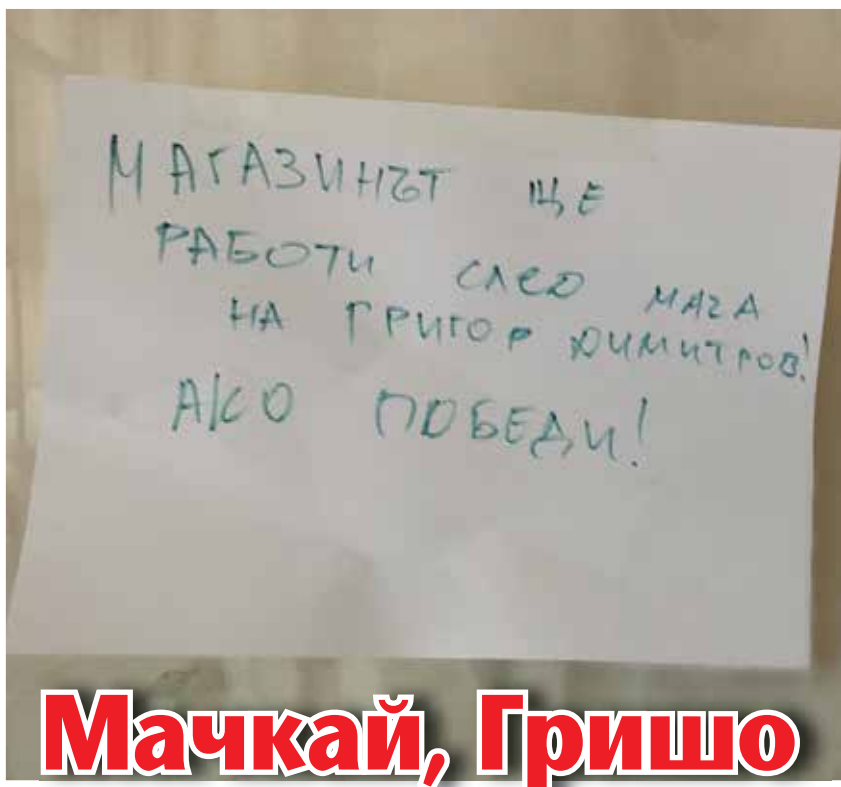 МАГАЗИНЪТ ЩЕ
РАБОТИ СЛЕД МАЧА
НА ГРИГОР ДИМИТРОВ!
АКО ПОБЕДИ!
Мачкай, Гришо